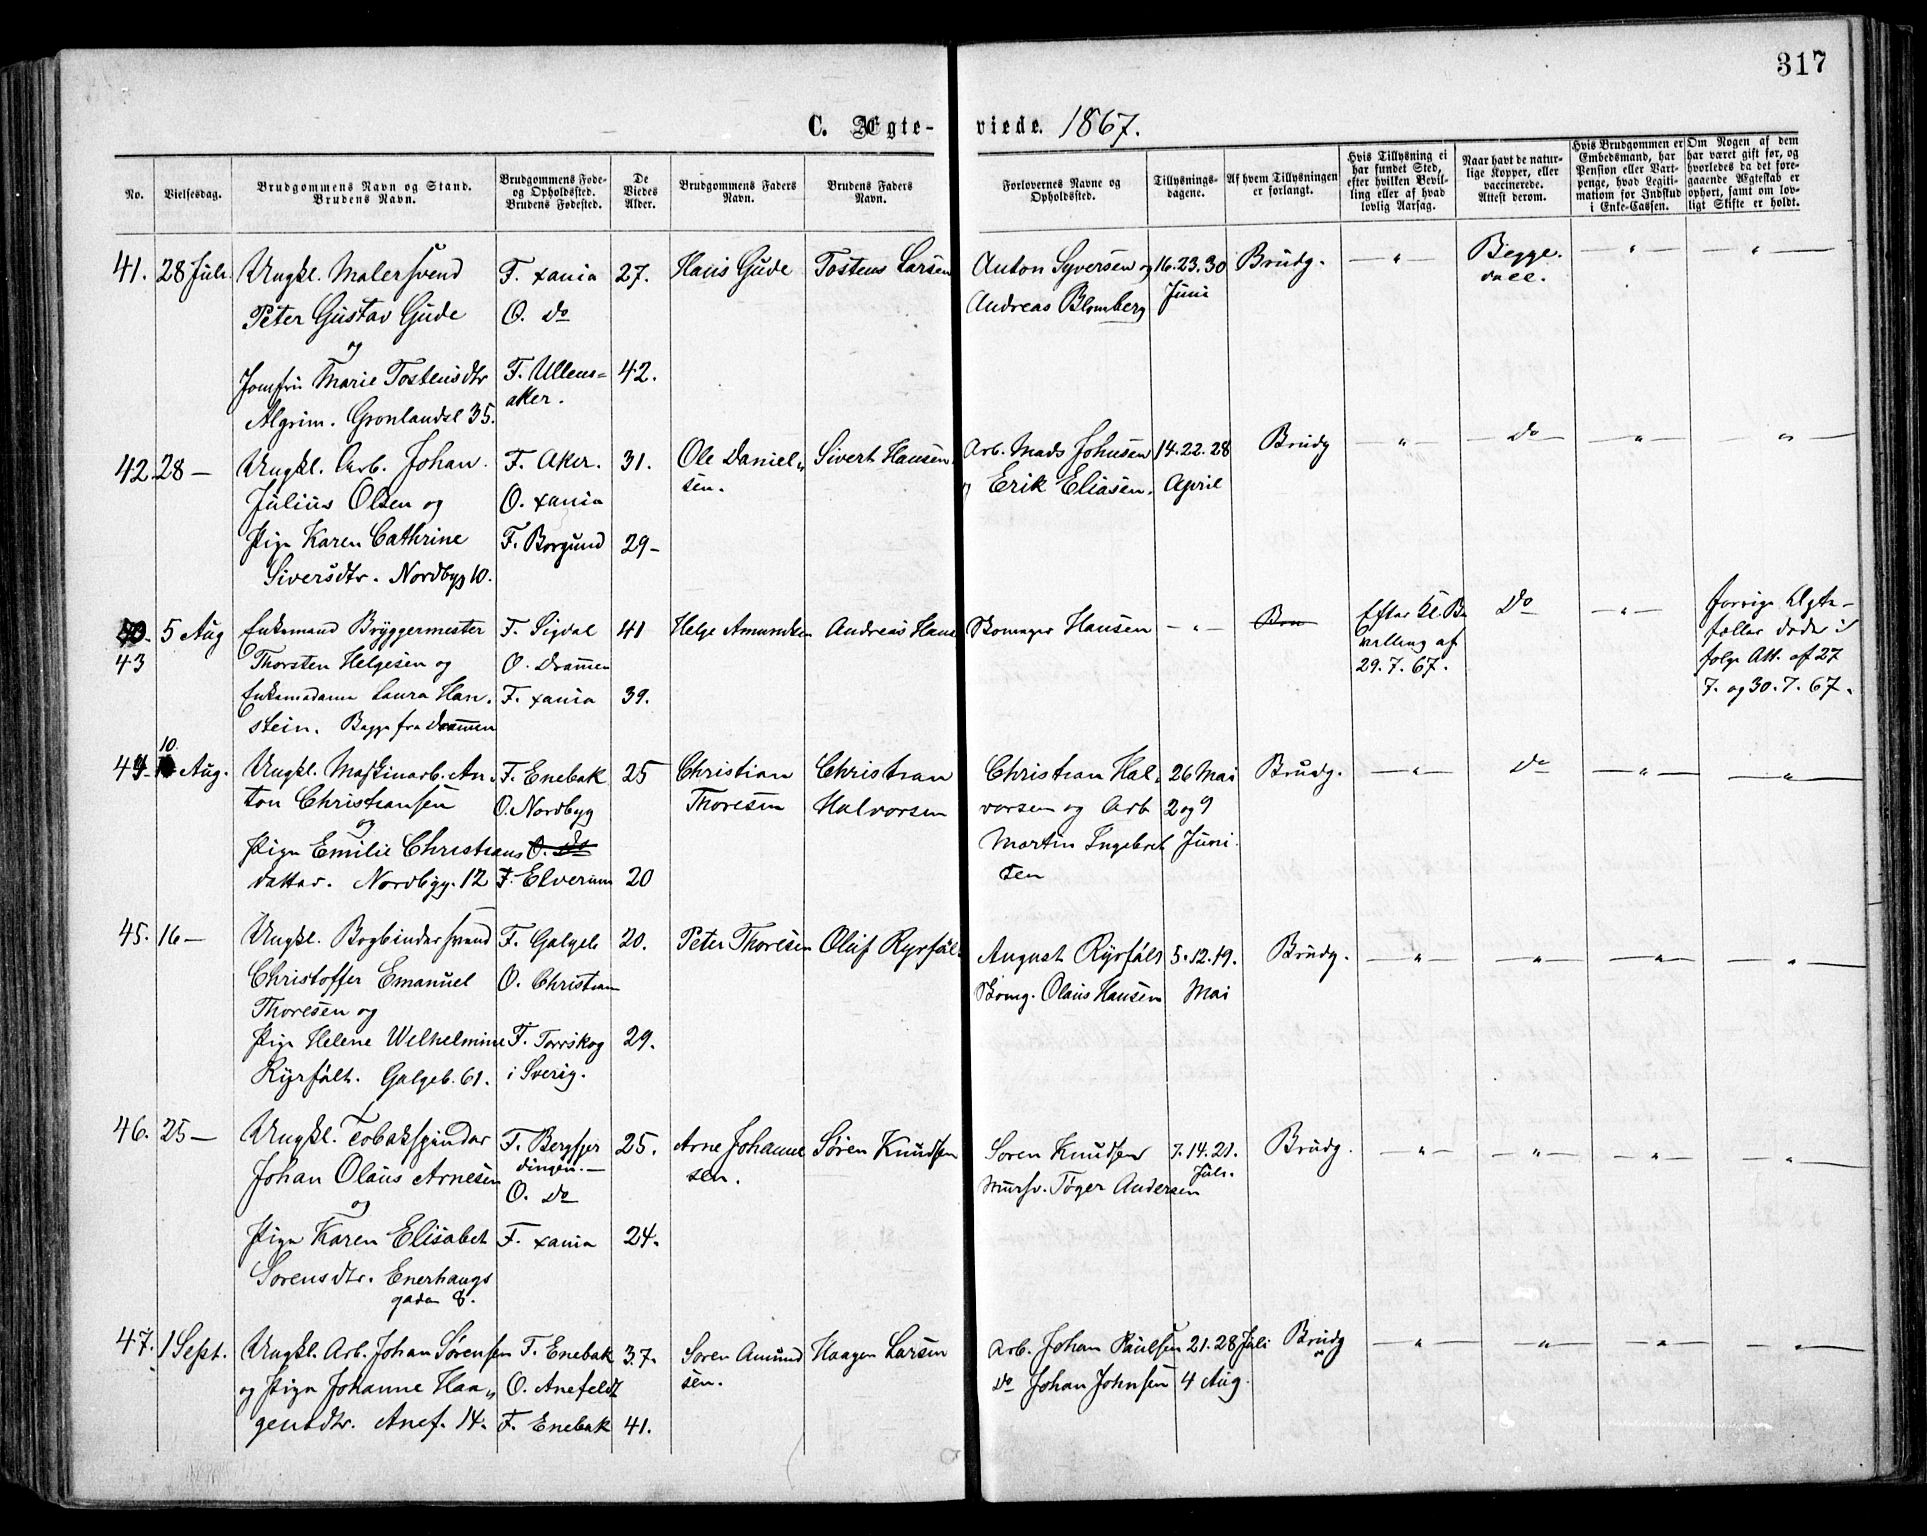 317
C. Ægte-
viede. 1867.
No.
Vielsesdag.
Brudgommens Navn og Stand.
Brudens Navn.
Brudgommens Føde-
og Opholdssted.
Brudens Fødested.
De
Viedes
Alder.
Brudgommens Faders
Navn.
Brudens Faders
Navn.
Forlovernes Navne og
Opholdssted.
Tillysnings-
dagene.
Af hvem Tillysningen
er forlangt.
Hvis Tillysning ei
har fundet Sted,
efter hvilken Bevil-
ling eller af hvad
lovlig Aarsag.
Naar havt de natur-
lige Kopper, eller
vaccinerede.
Attest derom.
Hvis Brudgommen er
Embedsmand, har
Pension eller Vart-
penge, hvad Legiti-
mation for Indskud
i Enke-Cassen.
Om Nogen af dem
har været gift før, og
hvorledes da det fore-
gaaende Ægteskab er
ophørt, samt om lov-
ligt Skifte er holdt.
41.
28 Juli
Ungkl. Malersvend
Peter Gustav Gude
og
Jomfru Marie Tostensdtr
Algrim. Gronlandsl 35.
F. xania
O. do
F. Ullens-
aker.
27.
42.
Hans Gude
Tostens Larsen
Anton Syversen og
Andreas Blomberg
16. 23. 30
Juni
Brudg.
— " —
Begge.
vacc.
— " —
— " —
42.
28 —
Ungkl. Arb. Johan
Julius Olsen og
Pige Karen Cathrine
Siversdtr. Nordbyg 10.
F. Aker.
O. xania
F. Borgund
31.
29 -
Ole Daniel-
sen.
Sivert Hansen.
Arb. Mads Johnsen
og Erik Eliasen.
14. 22. 28
April
Brudg
— " —
Do
— " —
— " —
40.
43
5 Aug
Enkemand Bryggermester
Thorsten Helgesen og
Enkemadame Laura Han-
stein. Begge fra Drammen
F. Sigdal
O. Drammen
F. xania
41
39.
Helge Amundsen
Andreas Hans
Hansen
— " —
Bru
Efter Kl. Be
villing af
29. 7. 67.
Do
— " —
forrige Ægte-
fæller døde i
følge Att. af 27
7. og 30. 7. 67.
44
10
Aug.
Ungkl. Maskinarb. An-
ton Christiansen
og
Pige Emilie Christians
datter. Nordbyg. 12
F. Enebak
O. Nordbyg
O. Do
F. Elverum
25
20
Christian
Thoresen
Christian
Halvorsen
Christian Hal-
vorsen og Arb
Martin Ingebret
sen
26 Mai
2 og 9
Juni.
Brudg.
— " —
Do
— " —
— " —
45.
16 —
Ungkl. Bogbindersvend
Christoffer Emanuel
Thoresen og
Pige Helene Welhelmine
Ryrfält. Galgeb. 61.
F. Galgeb
O. Christian
F. Torrskog
i Sverig.
20.
29.
Peter Thoresen
Oluf Ryrfäl-
August Ryrfält
Olaus Hansen
5. 12. 19.
Mai
Brudg.
— " —
— " —
— " —
— " —
46.
25 —
Ungkl. Tobakspinder
Johan Olaus Arnesen
og
Pige Karen Elisabet
Sorensdtr. Enerhaugs
gaden 8.
F. Bergfjer
dingen. —
O. do
F. xania
25.
24.
Arne Johanne
sen.
Søren Knudsen
Soren Knudsen
Mursv. Tøger Andersen
7. 14. 21.
Juli.
Brudg.
— " —
— " —
— " —
— " —
47.
1 Sept.
Ungkl. Arb. Johan Sørensen
og Pige Johanne Haa-
gensdtr. Anef. 14.
F. Enebak
O. Anefeldt
F. Enebak
37.
41.
Soren Amund
sen.
Haagen Larsen
Arb. Johan Paulsen
Do Johan Johnsen
21. 28 Juli
4 Aug.
Brudg
— " —
— " —
— " —
— " —